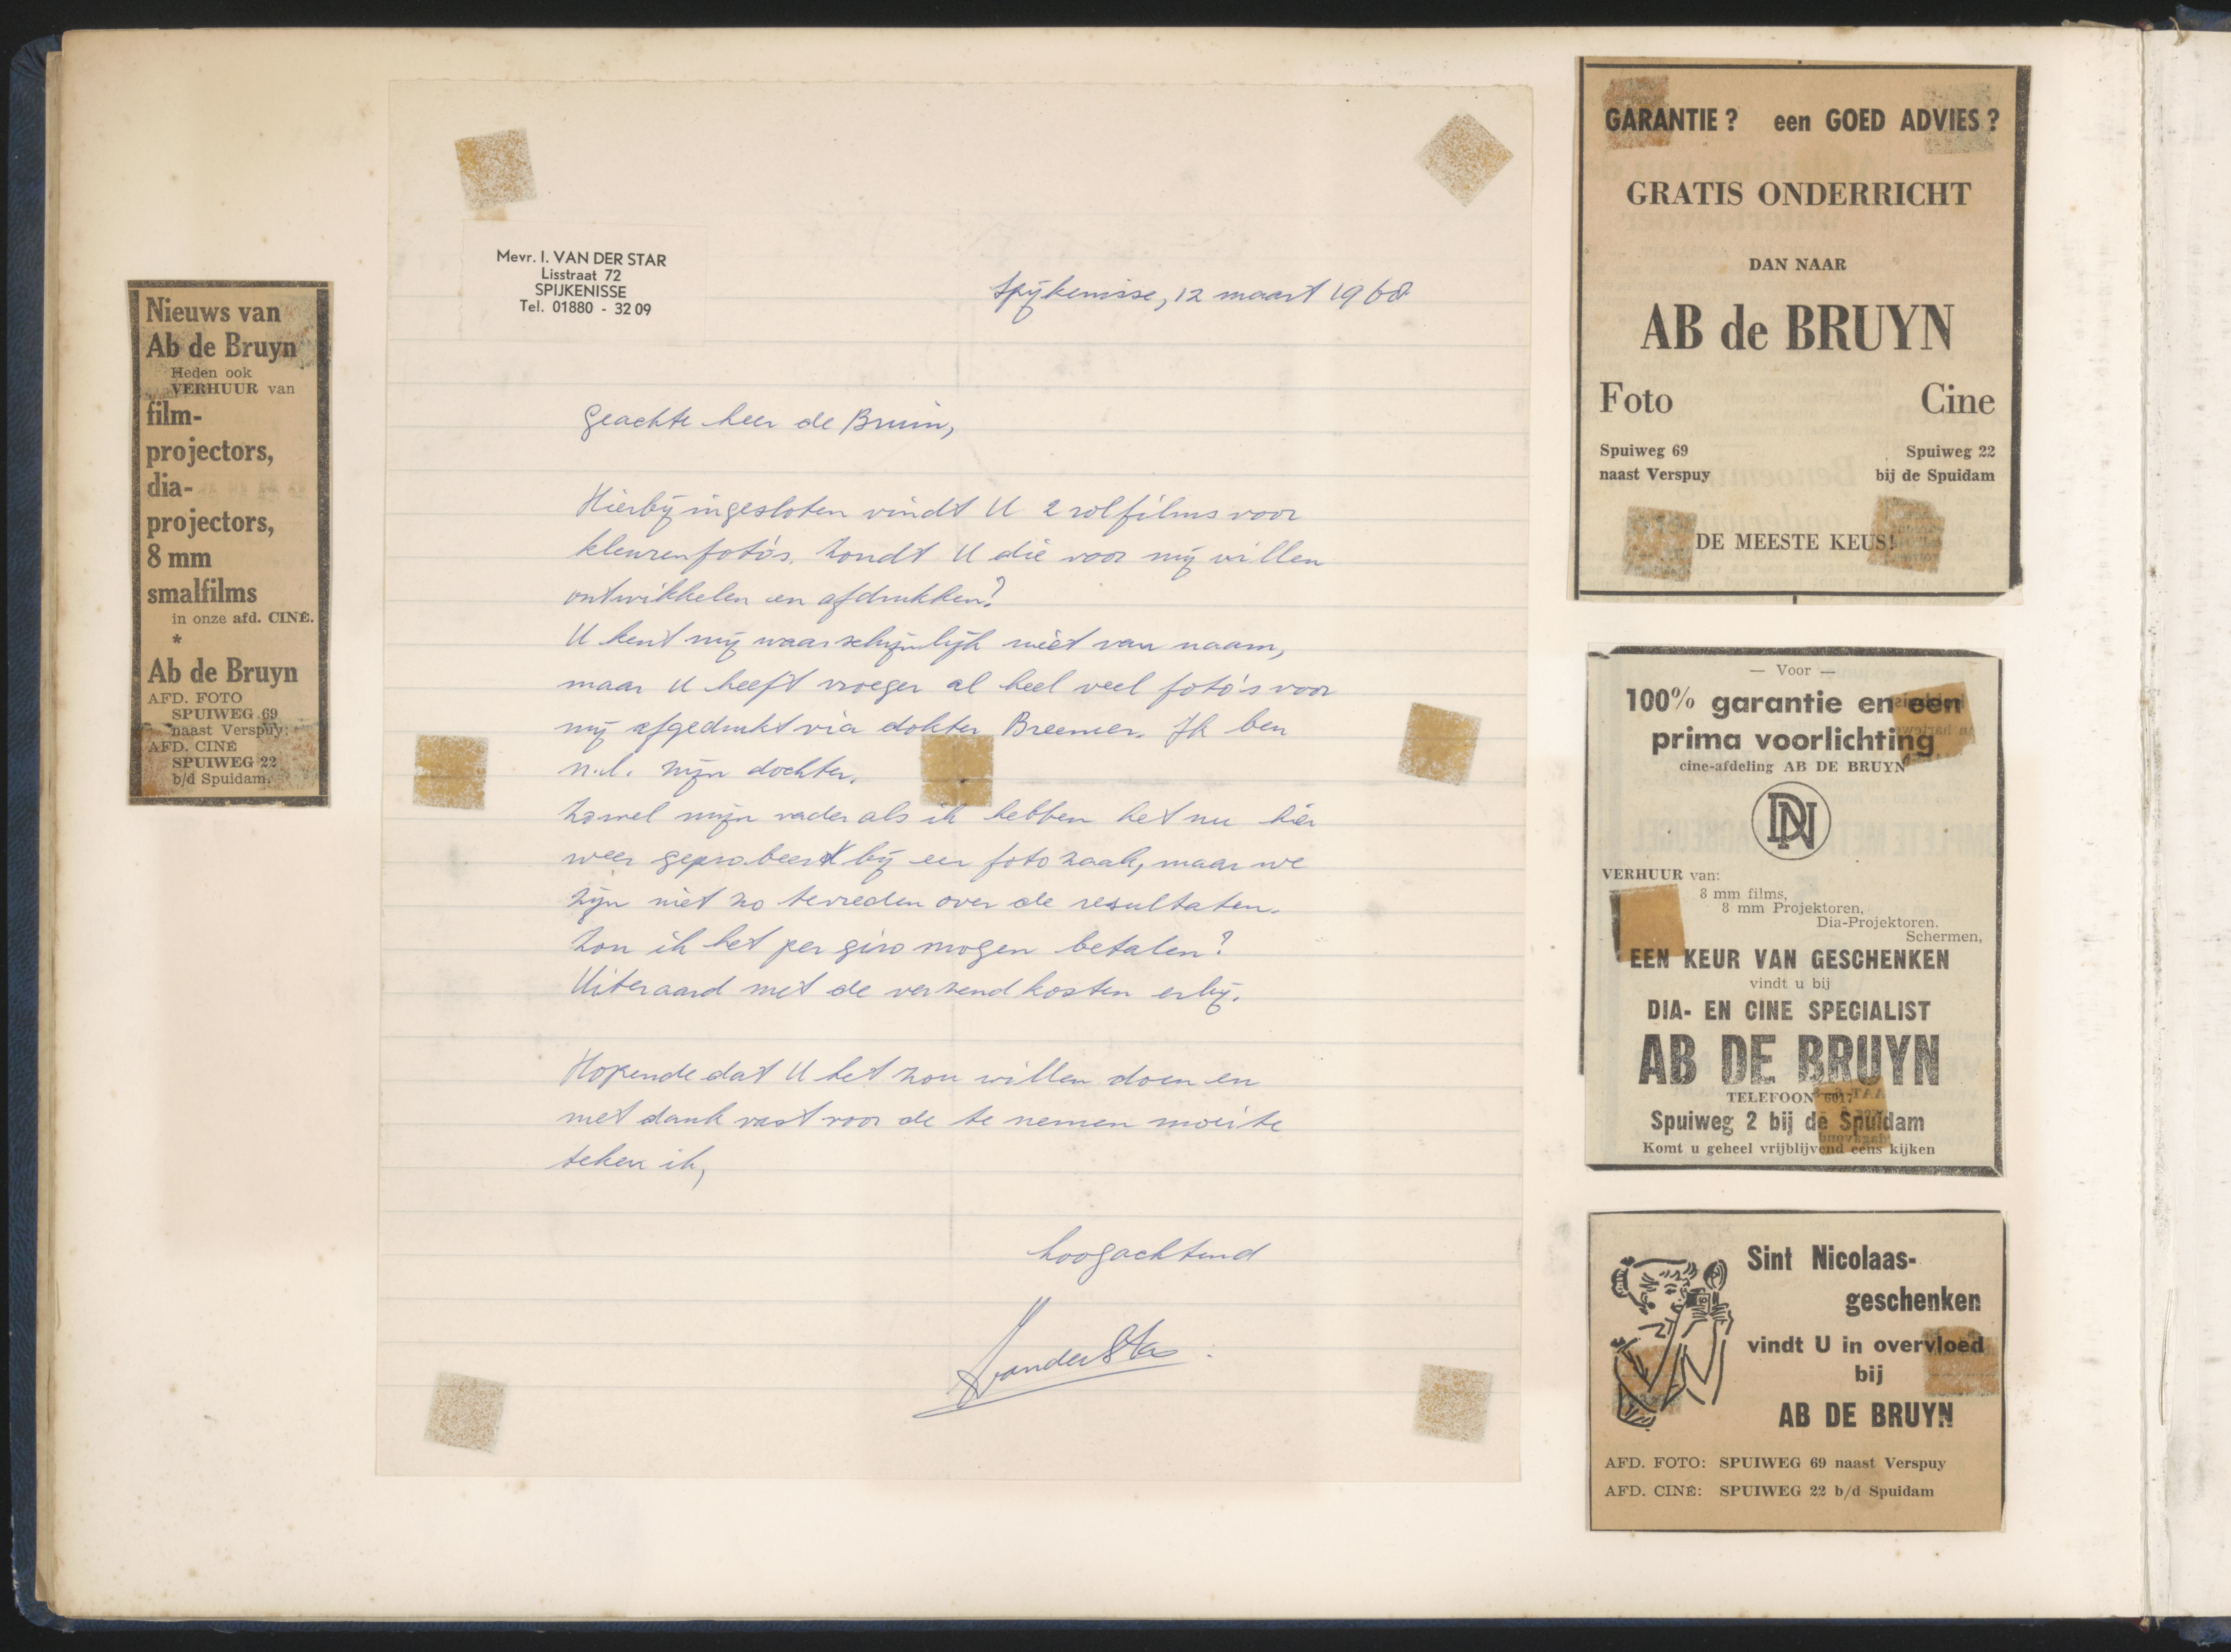 Nieuws van
Ab de Bruyn
Heden ook
VERHUUR van
film-
projectors,
dia-
projectors,
8 mm
smalfilms
in onze afd. CINÉ.
*
Ab de Bruyn
AFD. FOTO
SPUIWEG 69
naast Verspuy:
AFD. CINÉ
SPUIWEG 22
b/d Spuidam.
Mevr. I. VAN DER STAR
Lisstraat 72
SPIJKENISSE
Tel. 01880 - 32 09
Spijkenisse, 12 maart 1968
Geachte heer de Bruin,
Hierbij ingesloten vindt U 2 rolfilms voor
kleurenfoto's. Zoudt U die voor mij willen
ontwikkelen en afdrukken?
U kent mij waarschijnlijk niet van naam,
maar U heeft vroeger al heel veel foto's voor
mij afgedrukt via dokter Breemer. Ik ben
n.l. zijn dochter.
Zowel mijn vader als ik hebben het nu hier
weer geprobeerd bij een foto zaak, maar we
zijn niet zo tevreden over de resultaten.
Zou ik het per giro mogen betalen?
Uiteraard met de verzendkosten erbij.
Hopende dat U het zou willen doen en
met dank vast voor de te nemen moeite
teken ik,
hoogachtend
I van der Star.
GARANTIE? een GOED ADVIES?
GRATIS ONDERRICHT
DAN NAAR
AB de BRUYN
Foto Cine
Spuiweg 69 Spuiweg 22
naast Verspuy bij de Spuidam
DE MEESTE KEUS!
— Voor —
100% garantie en een
prima voorlichting
cine-afdeling AB DE BRUYN
VERHUUR van:
8 mm films,
8 mm Projektoren,
Dia-Projektoren.
Schermen,
EEN KEUR VAN GESCHENKEN
vindt u bij
DIA- EN CINE SPECIALIST
AB DE BRUYN
TELEFOON 6017
Spuiweg 2 bij de Spuidam
Komt u geheel vrijblijvend eens kijken
Sint Nicolaas-
geschenken
vindt U in overvloed
bij
AB DE BRUYN
AFD. FOTO: SPUIWEG 69 naast Verspuy
AFD. CINÉ: SPUIWEG 22 b/d Spuidam